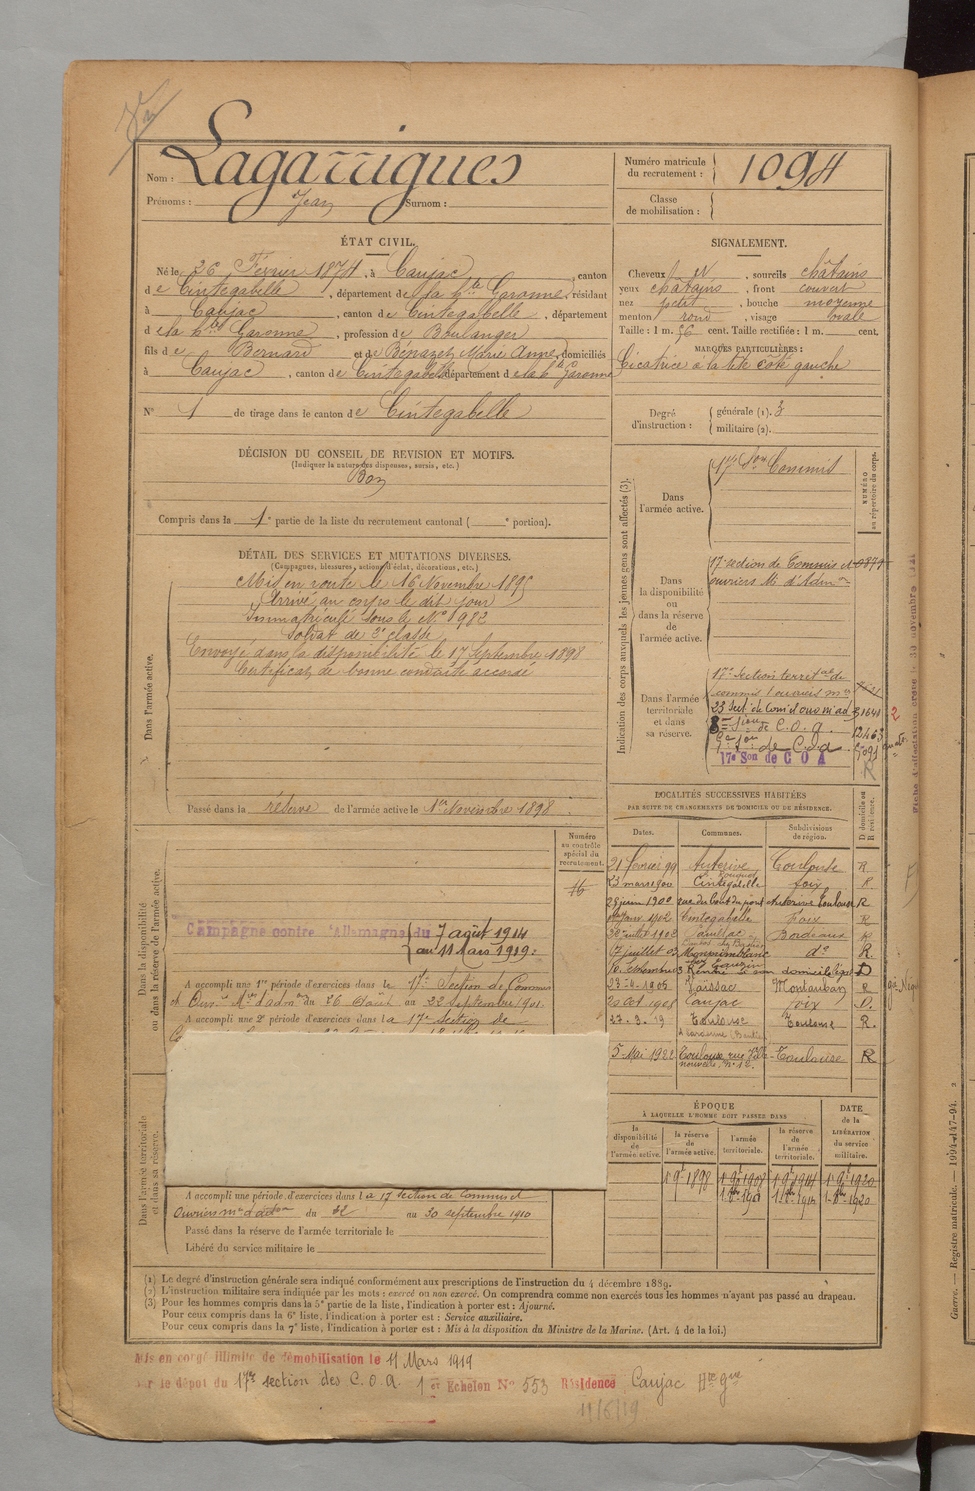 Nom : Lagarrigues
Prénoms : Jean Surnom :
Numéro matricule du recrutement : 1094
Classe de mobilisation :
ÉTAT CIVIL.
Né le 26 Février 1874, à Caujac, canton
de Cintegabelle, département de la Hte Garonne, résidant
à Caujac, canton de Cintegabelle, département
de la Hte Garonne, profession de Boulanger
fils de Bernard et de Bépazet Marie Anne, domiciliés
à Caujac, canton de Cintegabelle, département de la Hte Garonne
N° 1 de tirage dans le canton de Cintegabelle
SIGNALEMENT.
Cheveux , sourcils châtains
yeux châtains, front couvert
nez petit, bouche moyenne
menton rond, visage ovale
Taille : 1 m. 76 cent. Taille rectifiée : 1 m. cent.
MARQUES PARTICULIÈRES :
Cicatrice à la tête côté gauche
Degré d'instruction : générale (1). 3
militaire (2).
DÉCISION DU CONSEIL DE REVISION ET MOTIFS.
(Indiquer la nature des dispenses, sursis, etc.)
Bon
Compris dans la 1e partie de la liste du recrutement cantonal ( e portion).
DÉTAIL DES SERVICES ET MUTATIONS DIVERSES.
(Campagnes, blessures, actions d'éclat, décorations, etc.)
Dans l'armée active.
Mis en route le 16 Novembre 1895
Arrivé au corps le dit jour
Immatriculé sous le No 1982
Soldat de 2e classe
Envoyé dans la disponibilité le 17 Septembre 1898
Certificat de bonne conduite accordé
Passé dans la réserve de l'armée active le 1er Novembre 1898
Indication des corps auxquels les jeunes gens sont affectés (3).
NUMÉRO au répertoire du corps.
Dans l'armée active.
17e Son Commis
Dans la disponibilité ou dans la réserve de l'armée active.
17e section de Commis et
ouvriers Mres d'Admon
Dans l'armée territoriale et dans sa réserve.
17e Section territale de
commis & ouvriers mres
23 Sect. de Com et ouv m ad 31641
de C.O.a. 12463
de C.O.a
17e Son de C O A
Fiche d'affectation créée le 30 novembre
LOCALITÉS SUCCESSIVES HABITÉES
PAR SUITE DE CHANGEMENTS DE DOMICILE OU DE RÉSIDENCE.
Dates. Communes. Subdivisions de région. D domicile ou R résidence.
21 février 99 Auterive Toulouse R
23 mars 1900 Cintegabelle foix R.
28 juin 1900 rue du bout du pont Auterive Toulouse R
1902 Cintegabelle Foix R
28 juillet 1902 Bordeaux R
17 juillet 03 Monpremblanc do R.
D
23-4-1905 Vaïssac Montauban R
20 Oct 1905 Caujac foix D.
27-3-19 Toulouse Toulouse R.
5 Mai 1922 Toulouse rue Toulouse R
nouvelle, No 12.
Dans la disponibilité ou dans la réserve de l'armée active.
Numéro au contrôle spécial du recrutement.
Campagne contre l'Allemagne du 7 août 1914
au 11 Mars 1919.
A accompli une 1re période d'exercices dans la 17e Section de Commis
et Ouv. Mres d'adm. du 26 août au 22 septembre 1901.
A accompli une 2e période d'exercices dans la 17e Section de
Dans l'armée territoriale et dans sa réserve.
A accompli une période d'exercices dans la 17 Section de Commis et
Ouvriers m. d'adon du 22 au 30 septembre 1910
Passé dans la réserve de l'armée territoriale le
Libéré du service militaire le
ÉPOQUE
À LAQUELLE L'HOMME DOIT PASSER DANS
la disponibilité de l'armée active. la réserve de l'armée active. l'armée territoriale. la réserve de l'armée territoriale.
DATE de la LIBÉRATION du service militaire.
1 9bre 1898 1 9bre 1908 1 9bre 1914 1 9bre 1920
(1) Le degré d'instruction générale sera indiqué conformément aux prescriptions de l'instruction du 4 décembre 1889.
(2) L'instruction militaire sera indiquée par les mots : exercé ou non exercé. On comprendra comme non exercés tous les hommes n'ayant pas passé au drapeau.
(3) Pour les hommes compris dans la 5e partie de la liste, l'indication à porter est : Ajourné.
Pour ceux compris dans la 6e liste, l'indication à porter est : Service auxiliaire.
Pour ceux compris dans la 7e liste, l'indication à porter est : Mis à la disposition du Ministre de la Marine. (Art. 4 de la loi.)
Mis en congé illimité de démobilisation le 11 Mars 1919
par le dépôt du 17e section des C.O.a. 1er Echelon No 553 Résidence Caujac Hte Gne
11/6/19
Guerre. — Registre matricule. — 1994-147-94.